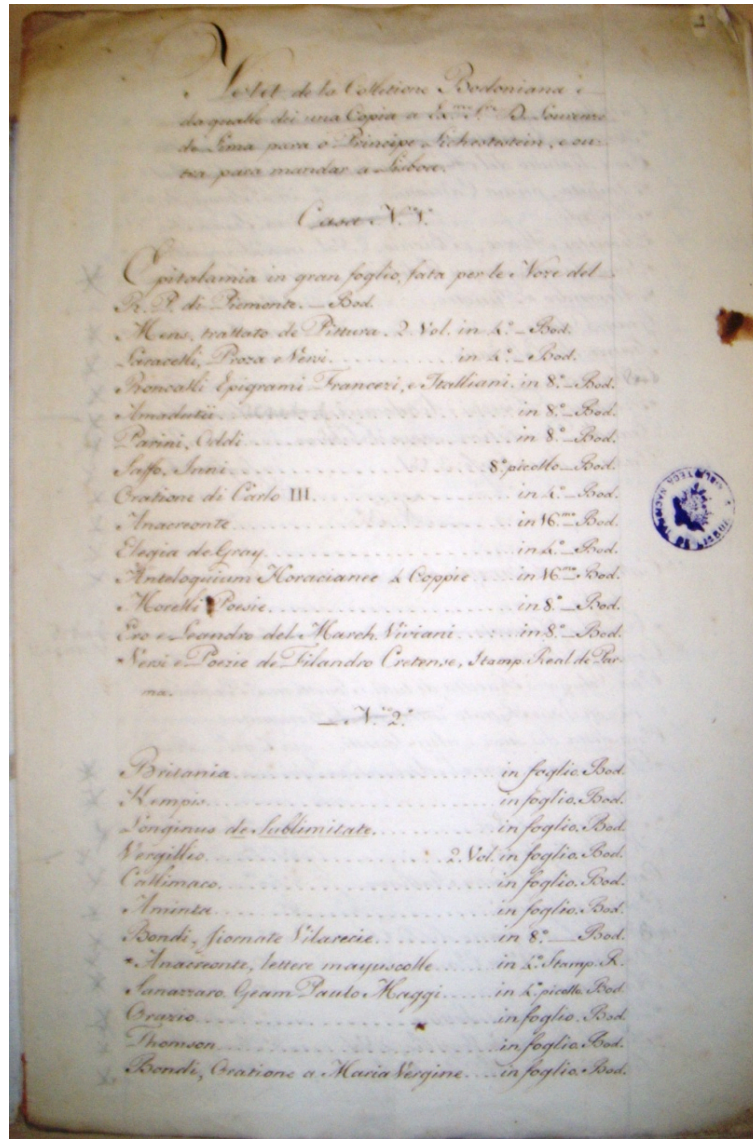 1
Nota de la Colletione Bodoniana e
da qualle dei una Copia a Exmo Snr D. Lourenzo
de Lima para o Principe Lichrotstein, e ou-
tra para mandar a Lisboa.
Casa N.1.
Epitalamia in gran foglio, fata per le Noze del
R. P. di Piemonte. Bod.
Mens, trattato de Pittura. 2 Vol. in 4.º Bod.
Proza e Versi in 4.º Bod.
Roncalli Epigrami Francezi, e Italliani. in 8.º Bod.
Amadutii in 8.º Bod.
Parini, Oddi in 8.º Bod.
Saffo, Inni 8.º picollo Bod.
Oratione di Carlo III. in 4.º Bod.
Anacreonte in 16.mo Bod.
Elegia de Gray in 4.º Bod.
Antaloquium Horacianee 4 Coppie in 16.mo Bod.
Morelli Poesie in 8.º Bod.
Ero e Leandro del March. Viviani in 8.º Bod.
Versi e Poezie de Filandro Cretense, Stamp. Real de Par-
ma.
N.ro 2.º
Britania in foglio. Bod.
Kempis in foglio. Bod.
Longinus de Sublimitate. in foglio. Bod.
Vergillio 2. Vol. in foglio. Bod.
Callimaco in foglio. Bod.
Aminta in foglio. Bod.
Bondi, giornate Vilarecie in 8.º Bod.
* Anacreonte, lettere mayuscolle in 4.º Stamp. R.
Sanazzaro, Geam Paulo Maggi in 4.º picolle. Bod.
Orazio in foglio. Bod.
Thomson in foglio. Bod.
Bondi, Oratione a Maria Vergine in foglio. Bod.